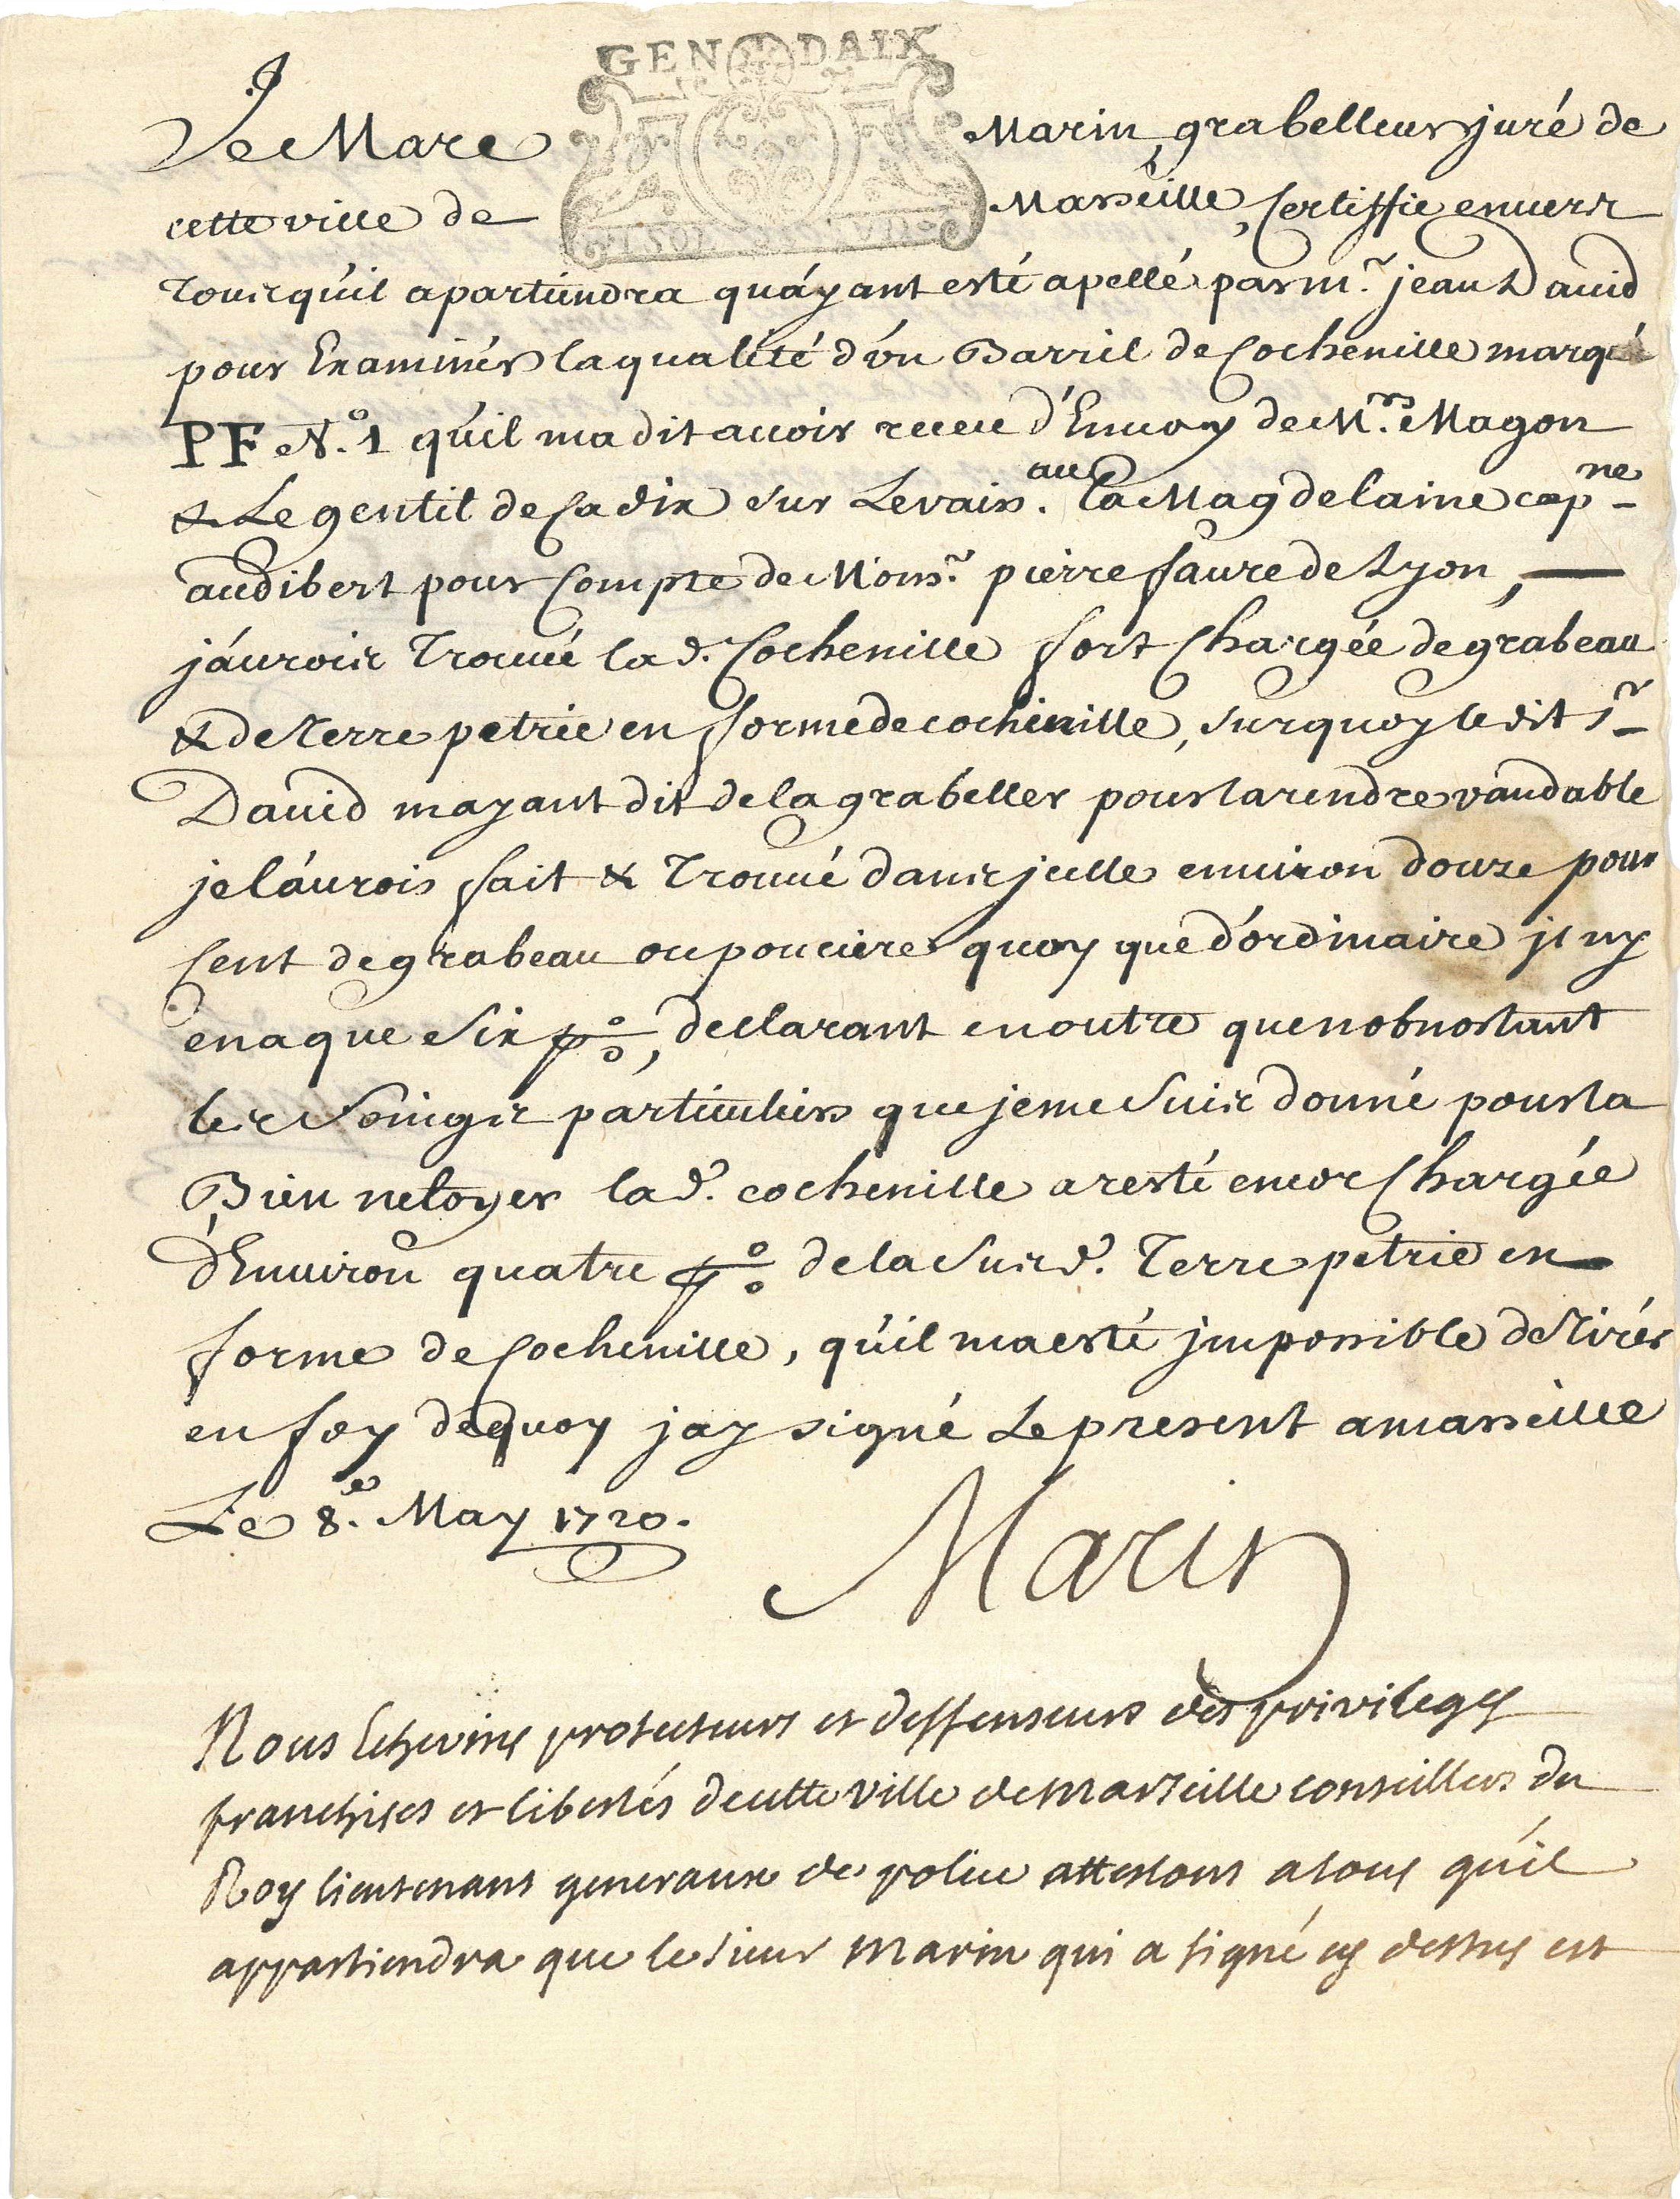 GEN DAIX
Je Marc Marin, grabelleur juré de
cette ville de Marseille, Certiffie envers
Tous quil apartiendra quáyant esté apellé par m.r jean David
pour Examinér la qualité d'un Barril de Cochenille marqué
PF N.o 1 quil ma dit avoir receu d'Envoy de M.rs Magon
& Le gentil de Cadix sur Le vais.au la Magdelaine cap.ne
audibert pour Compte de Mons.r pierre faure de Lyon,
jáurois Trouvé lad. Cochenille fort Chargée de grabeau
& de Terre petrie en forme de cochenille, sur quoy le dit S.r
David mayant dit de la grabeller pour la rendre vandable
je láurois fait & Trouvé dans jcelle environ douze pour
Cent de grabeau ou pouciere quoy que d'ordinaire jl ny
en a que Six p%, declarant en outre que nobnostant
les Soingts particuliers que je me suis donné pour la
Bien netoyer lad. cochenille a resté encor Chargée
d'Environ quatre p% de la susd. Terre petrie en
forme de Cochenille, quil ma esté jmpossible de Tirér
en foy de quoy jay signé Le present a marseille
Le 8.e May 1720.
Marin
Nous Echevins protecteurs et deffenseurs des privileges
franchises et libertés de cette ville de Marseille conseillers du
Roy lieutenans generaux de police attestons a tous qu'il
appartiendra que le sieur Marin qui a signé cy dessus est